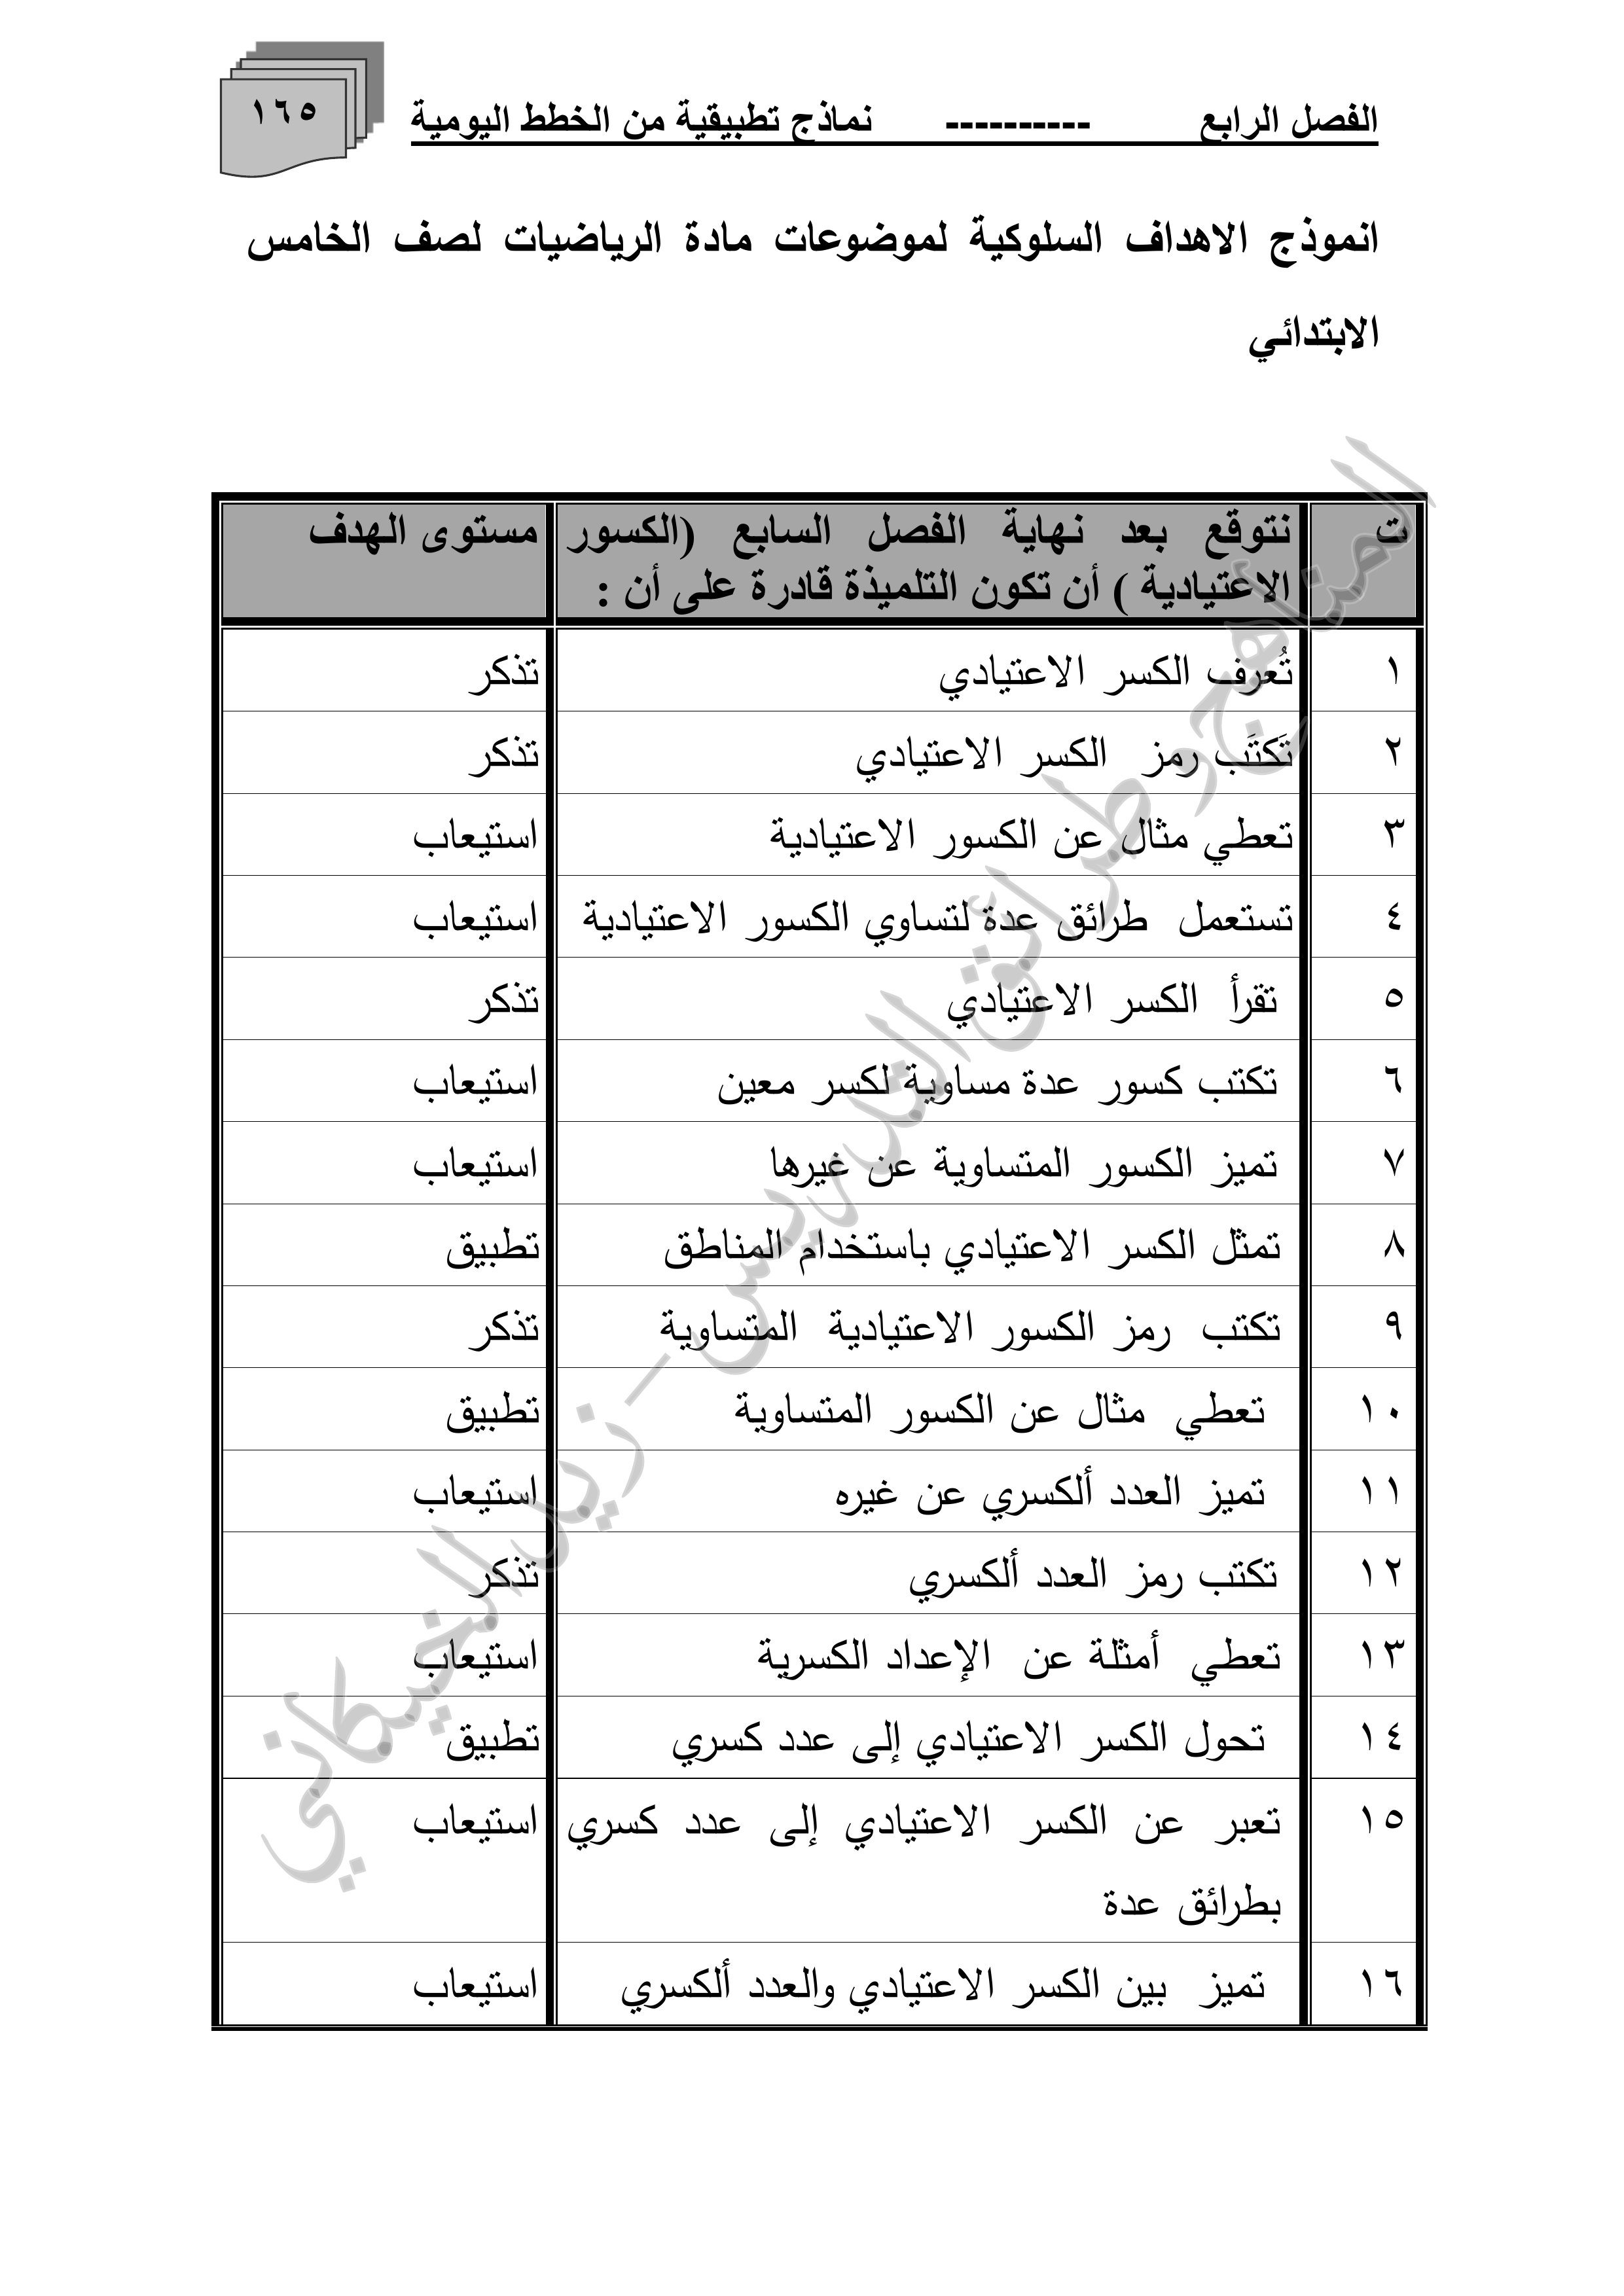 الفصل الرابع ---------- نماذج تطبيقية من الخطط اليومية
١٦٥
انموذج الاهداف السلوكية لموضوعات مادة الرياضيات لصف الخامس
الابتدائي
ت نتوقع بعد نهاية الفصل السابع (الكسور مستوى الهدف
الاعتيادية ) أن تكون التلميذة قادرة على أن :
١ تُعرف الكسر الاعتيادي تذكر
٢ تَكتَب رمز الكسر الاعتيادي تذكر
٣ تعطي مثال عن الكسور الاعتيادية استيعاب
٤ تستعمل طرائق عدة لتساوي الكسور الاعتيادية استيعاب
٥ تقرأ الكسر الاعتيادي تذكر
٦ تكتب كسور عدة مساوية لكسر معين استيعاب
٧ تميز الكسور المتساوية عن غيرها استيعاب
٨ تمثل الكسر الاعتيادي باستخدام المناطق تطبيق
٩ تكتب رمز الكسور الاعتيادية المتساوية تذكر
١٠ تعطي مثال عن الكسور المتساوية تطبيق
١١ تميز العدد ألكسري عن غيره استيعاب
١٢ تكتب رمز العدد ألكسري تذكر
١٣ تعطي أمثلة عن الإعداد الكسرية استيعاب
١٤ تحول الكسر الاعتيادي إلى عدد كسري تطبيق
١٥ تعبر عن الكسر الاعتيادي إلى عدد كسري استيعاب
بطرائق عدة
١٦ تميز بين الكسر الاعتيادي والعدد ألكسري استيعاب
المناهج وطرائق التدريس - زيد الخيكاني